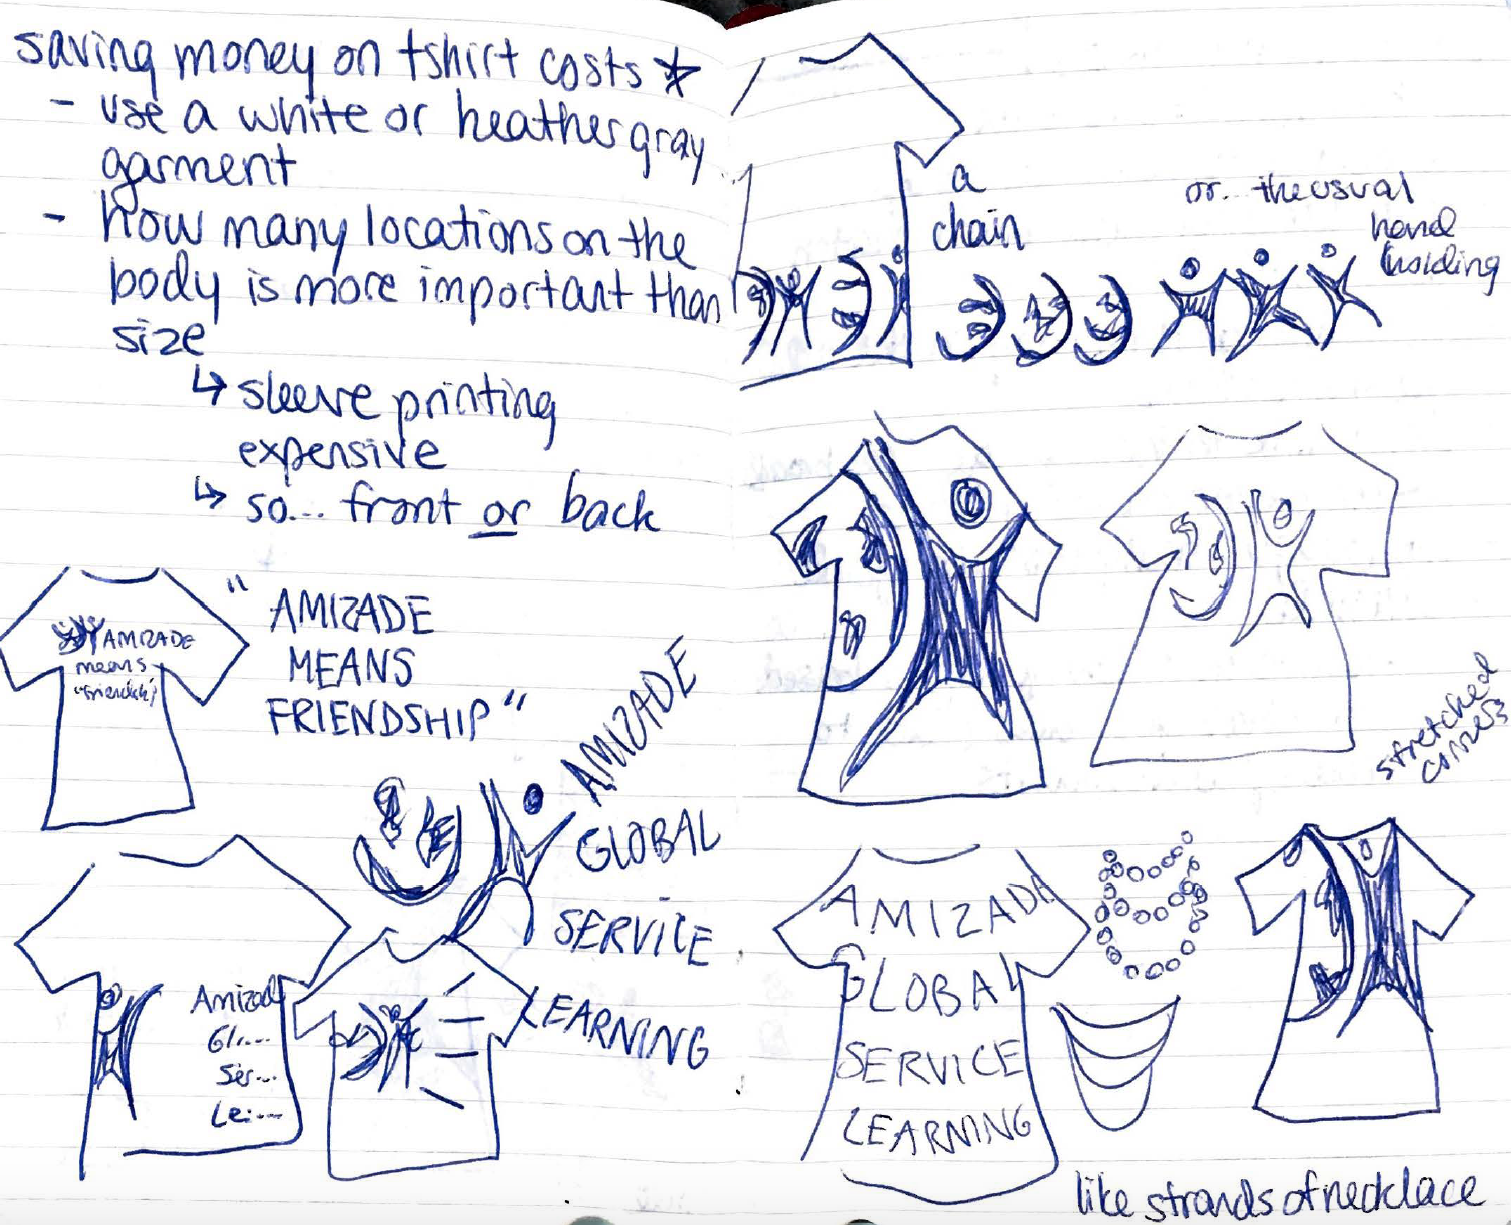 saving money on tshirt costs ☆
- use a white or heather gray
garment
- how many locations on the
body is more important than
size
↳ sleeve printing
expensive
↳ so... front or back
AMIZADE
means
"friendship"
" AMIZADE
MEANS
FRIENDSHIP "
AMIZADE
GLOBAL
SERVICE
LEARNING
Amizad
Gl....
Ser...
Le....
a
chain
or.. the usual
hand
holding
stretched
corners
AMIZADA
GLOBAL
SERVICE
LEARNING
like strands of necklace